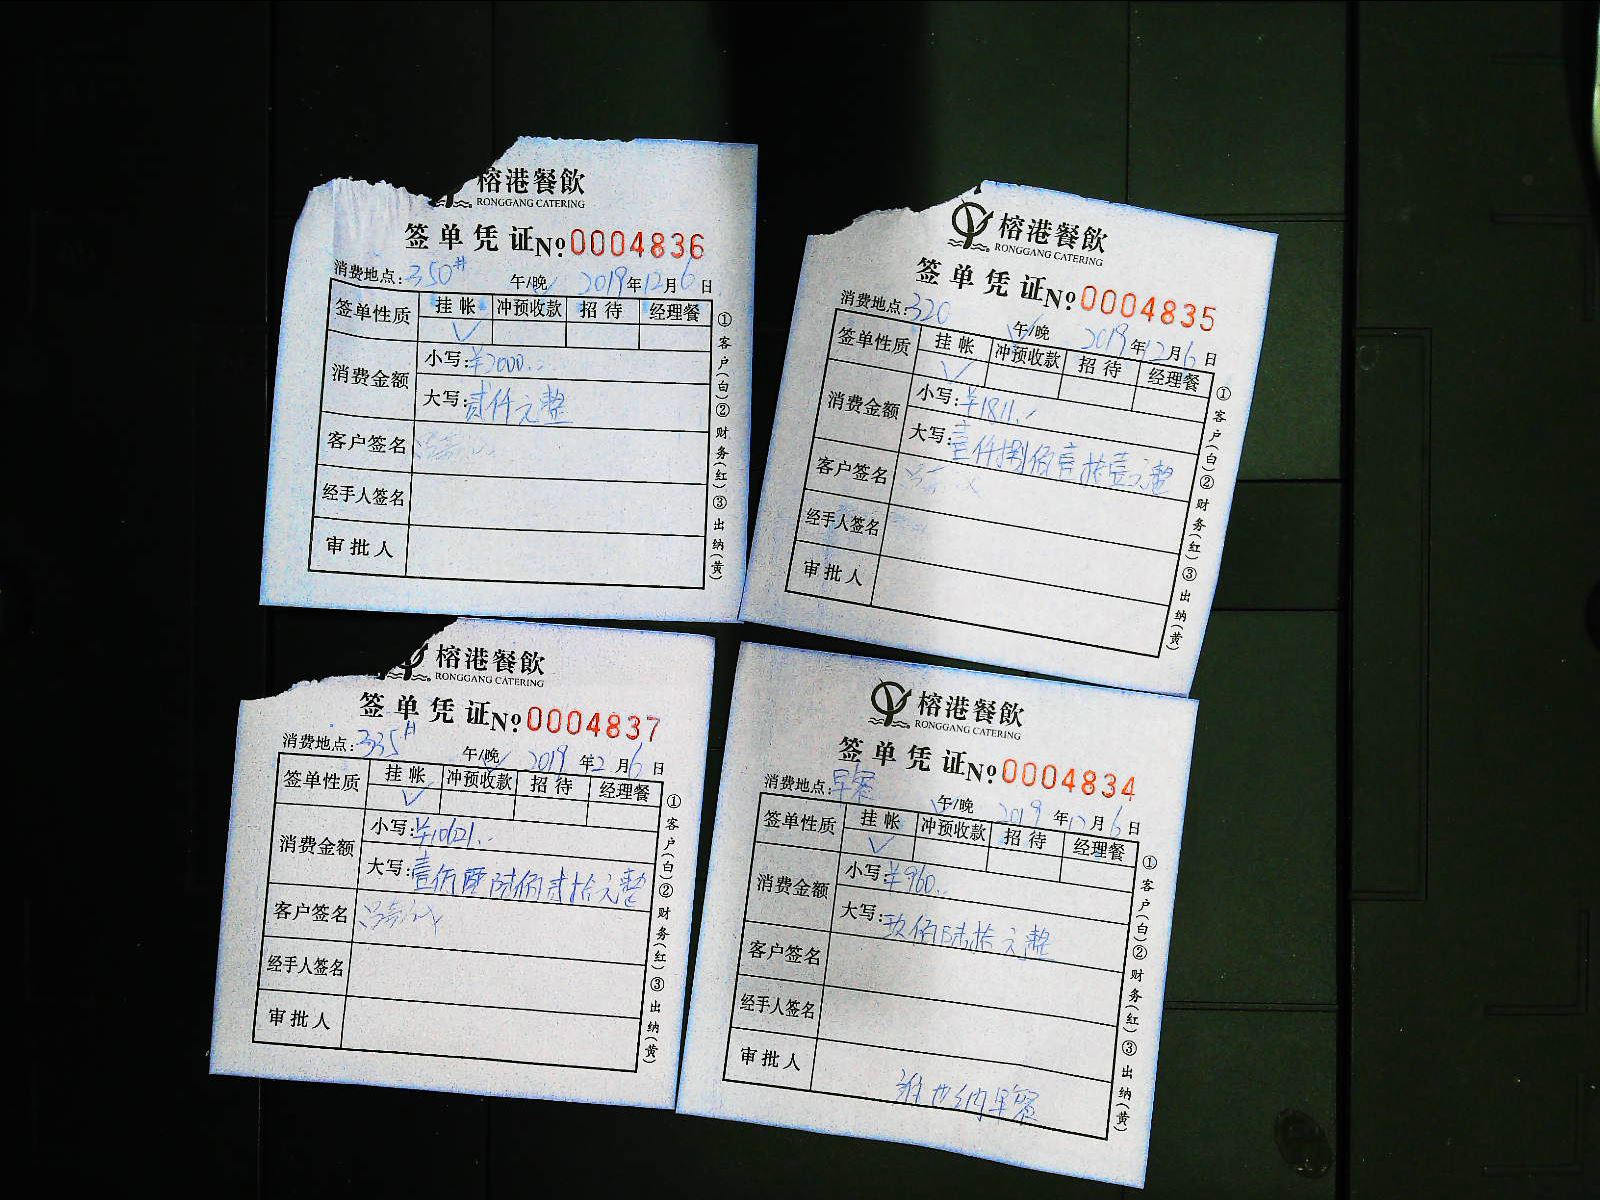 榕港餐飲
RONGGANG CATERING
签单凭证№0004836
消费地点:350# 午/晚 2019年12月6日
签单性质 挂帐 冲预收款 招待 经理餐
✓
消费金额 小写:¥2000..
大写:贰仟元整
客户签名
经手人签名
审批人
①客户(白)②财务(红)③出纳(黄)
榕港餐飲
RONGGANG CATERING
签单凭证№0004835
消费地点:320 午/晚 2019年12月6日
签单性质 挂帐 冲预收款 招待 经理餐
✓
消费金额 小写:¥1811..
大写:壹仟捌佰壹拾壹元整
客户签名
经手人签名
审批人
①客户(白)②财务(红)③出纳(黄)
榕港餐飲
RONGGANG CATERING
签单凭证№0004837
消费地点:335# 午/晚 2019年12月6日
签单性质 挂帐 冲预收款 招待 经理餐
✓
消费金额 小写:
大写:
客户签名
经手人签名
审批人
①客户(白)②财务(红)③出纳(黄)
榕港餐飲
RONGGANG CATERING
签单凭证№0004834
消费地点:早餐 午/晚 2019年12月6日
签单性质 挂帐 冲预收款 招待 经理餐
✓
消费金额 小写:¥960..
大写:玖佰陆拾元整
客户签名
经手人签名
审批人
维也纳早餐
①客户(白)②财务(红)③出纳(黄)